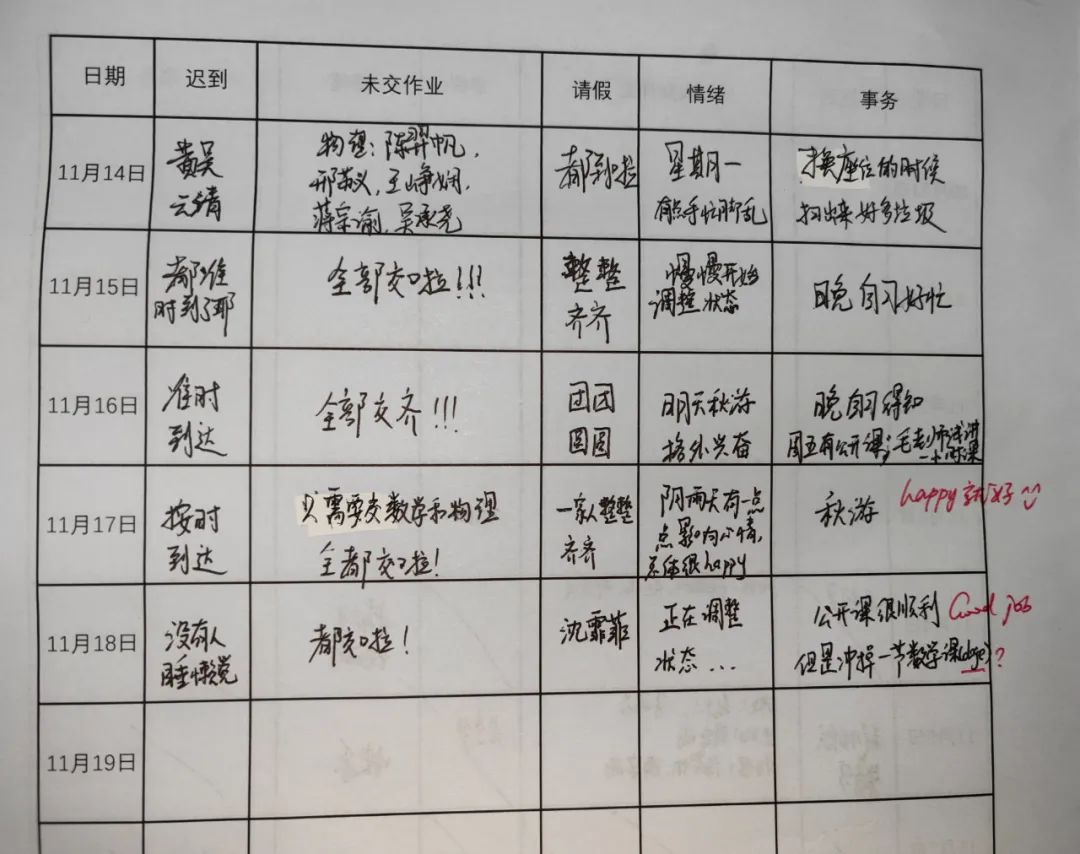 日期 迟到 未交作业 请假 情绪 事务
11月14日
黄吴
云靖
物理：陈羿帆，
邢敬义，王峥娴，
蒋宗谕，吴承尧
都到啦
星期一
有点手忙脚乱
换座位的时候
扫出来好多垃圾
11月15日
都准
时到了耶
全部交啦!!!
整整
齐齐
慢慢开始
调整状态
晚自习好忙
11月16日
准时
到达
全部交齐!!!
团团
圆圆
明天秋游
格外兴奋
晚自习得知
周五有公开课；毛老师试讲
11月17日
按时
到达
只需要交数学和物理
全都交啦!
一家人整整
齐齐
阴雨天有一点
点影响心情，
总体很happy
秋游
happy就好
11月18日
没有人
睡懒觉
都交啦!
沈霏菲
正在调整
状态...
公开课很顺利 Good job
但是冲掉一节数学课 ?
11月19日